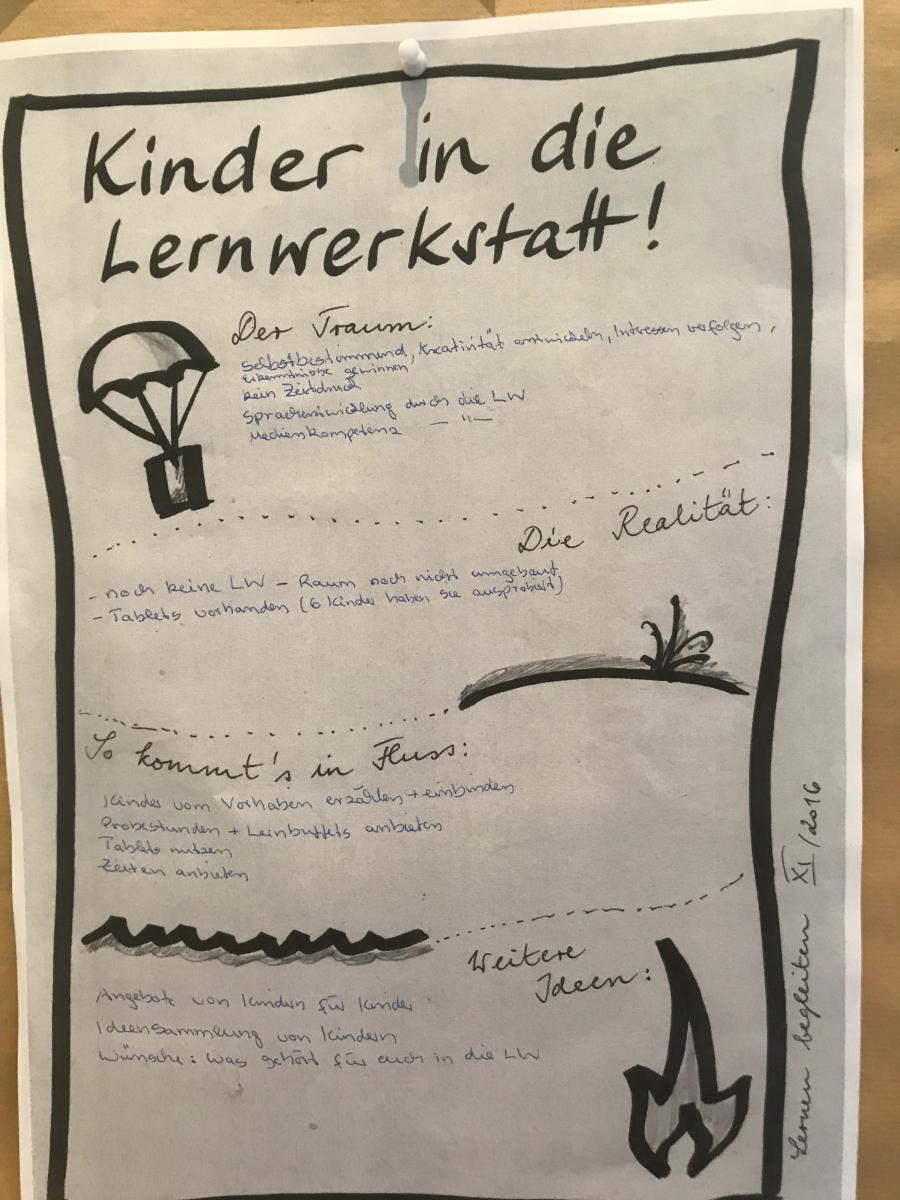 Kinder in die
Lernwerkstatt!
Der Traum:
Selbstbestimmend, Kreativität entwickeln, Interessen verfolgen,
Erkenntnisse gewinnen
kein Zeitdruck
Sprachentwicklung durch die LW
Medienkompetenz — " —
Die Realität:
- noch keine LW – Raum noch nicht umgebaut
- Tablets vorhanden (6 Kinder haben sie ausprobiert)
So kommt's in Fluss:
Kinder vom Vorhaben erzählen + einbinden
Probestunden + Lernbuffets anbieten
Tablets nutzen
Zeiten anbieten
Weitere
Ideen:
Angebote von Kindern für Kinder
Ideensammlung von Kindern
Wünsche: Was gehört für euch in die LW
Lernen begleiten XI/2016